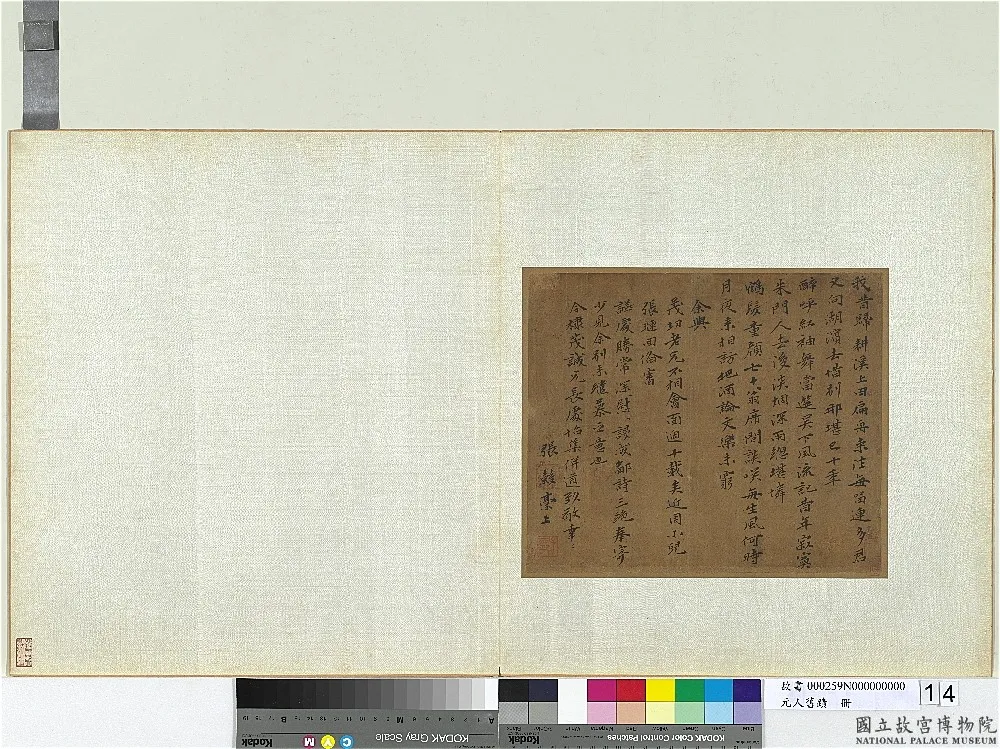 我昔歸耕溪上日扁舟來往每留連多君
又向湖濱去惜別那堪已十年
醉呼紅袖舞當筵吳下風流記昔年寂寞
朱門人去後淡烟深雨總堪憐
鶴髮童顏七十翁席間談笑每生風何時
月夜來相訪把酒論文樂未窮
余與
茂功老兄不相會面迨十載矣近因小兒
張璉回備審
謡處勝常深慰深慰鄙詩三絶奉寄
少見余別來繾慕之意也
令棣茂誠兄長處怡集併過致敬幸幸
張 稟上
故書 000259N000000000
元人舊蹟 冊
14
國立故宮博物院
NATIONAL PALACE MUSEUM
Kodak Gray Scale
KODAK Color Control Patches